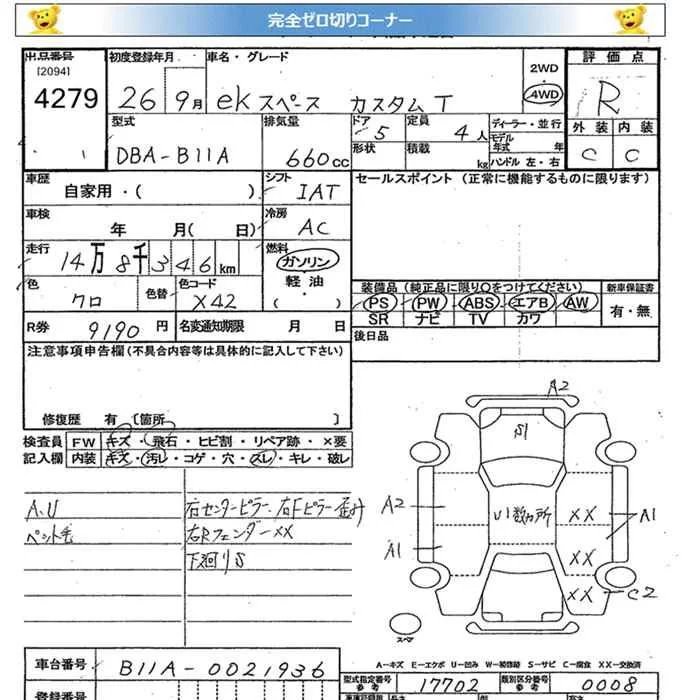 完全ゼロ切りコーナー
出品番号 初度登録年月 車名・グレード 2WD 評価点
[2094]
4279 26 9月 ekスペース カスタムT 4WD R
型式 排気量 ドア 5 定員 4人 ディーラー・並行 外装 内装
DBA-B11A 660cc 形状 積載 kg モデル年式 年 C C
ハンドル 左・右
車歴 シフト セールスポイント (正常に機能するものに限ります)
自家用・( ) IAT
車検 冷房
年 月( 日) AC
走行 燃料
14万8千346km ガソリン
色 色替 色コード 軽油 装備品 (純正品に限り○をつけてください) 新車保証書
クロ X42 ・( ) PS PW ABS エアB AW 有・無
SR ナビ TV カワ
R券 9190円 名変通知期限 月 日 後日品
注意事項申告欄(不具合内容等は具体的に記入して下さい)
修復歴 有 〔箇所 〕
検査員 FW キズ・飛石・ヒビ割・リペア跡・×要
記入欄 内装 キズ・汚レ・コゲ・穴・スレ・キレ・破レ
A、U 右センターピラー、右Fピラー歪み
ペット毛 右Rフェンダー××
下廻りS
A2
S1
A2 U1数カ所 XX A1
A1 XX
XX C2
スペア
A-キズ E-エクボ U-凹み W-補修跡 S-サビ C-腐食 XX-交換済
車台番号 B11A-0021936 型式指定番号 参考 17702 類別区分番号 参考 0008
登録番号 長さ 高さ